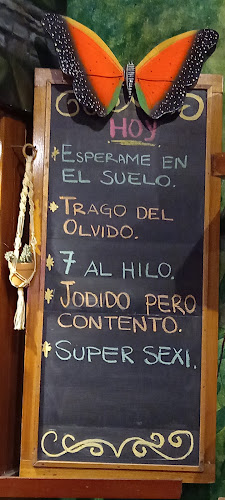 HOY
ESPERAME EN
EL SUELO.
TRAGO DEL
OLVIDO.
7 AL HILO.
JODIDO PERO
CONTENTO.
SUPER SEXI.